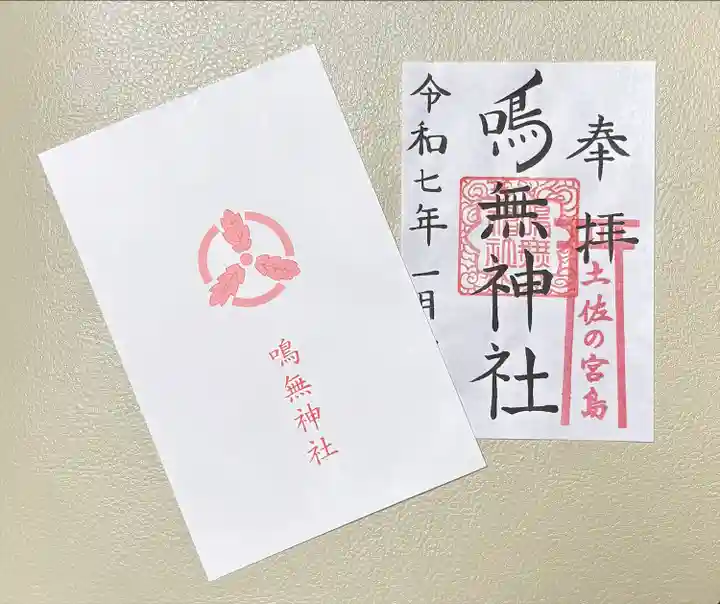 鳴無神社
奉拝
土佐の宮島
鳴無神社
令和七年一月